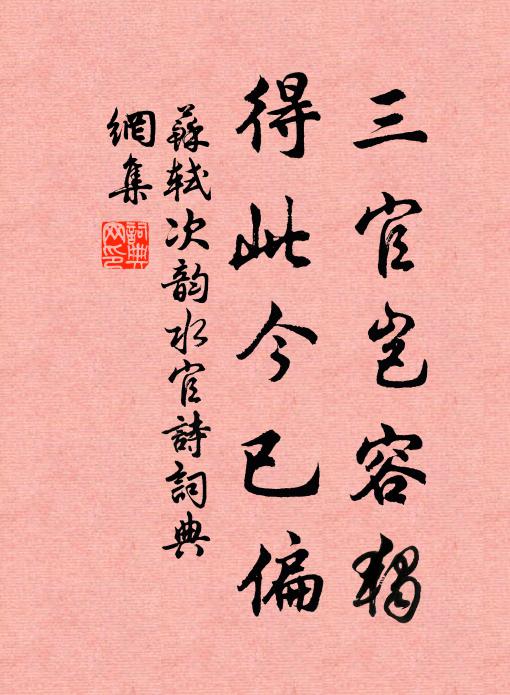 三官岂容獨
得此今已偏
蘇軾次韵水官詩詞典
網集
詞典
网印